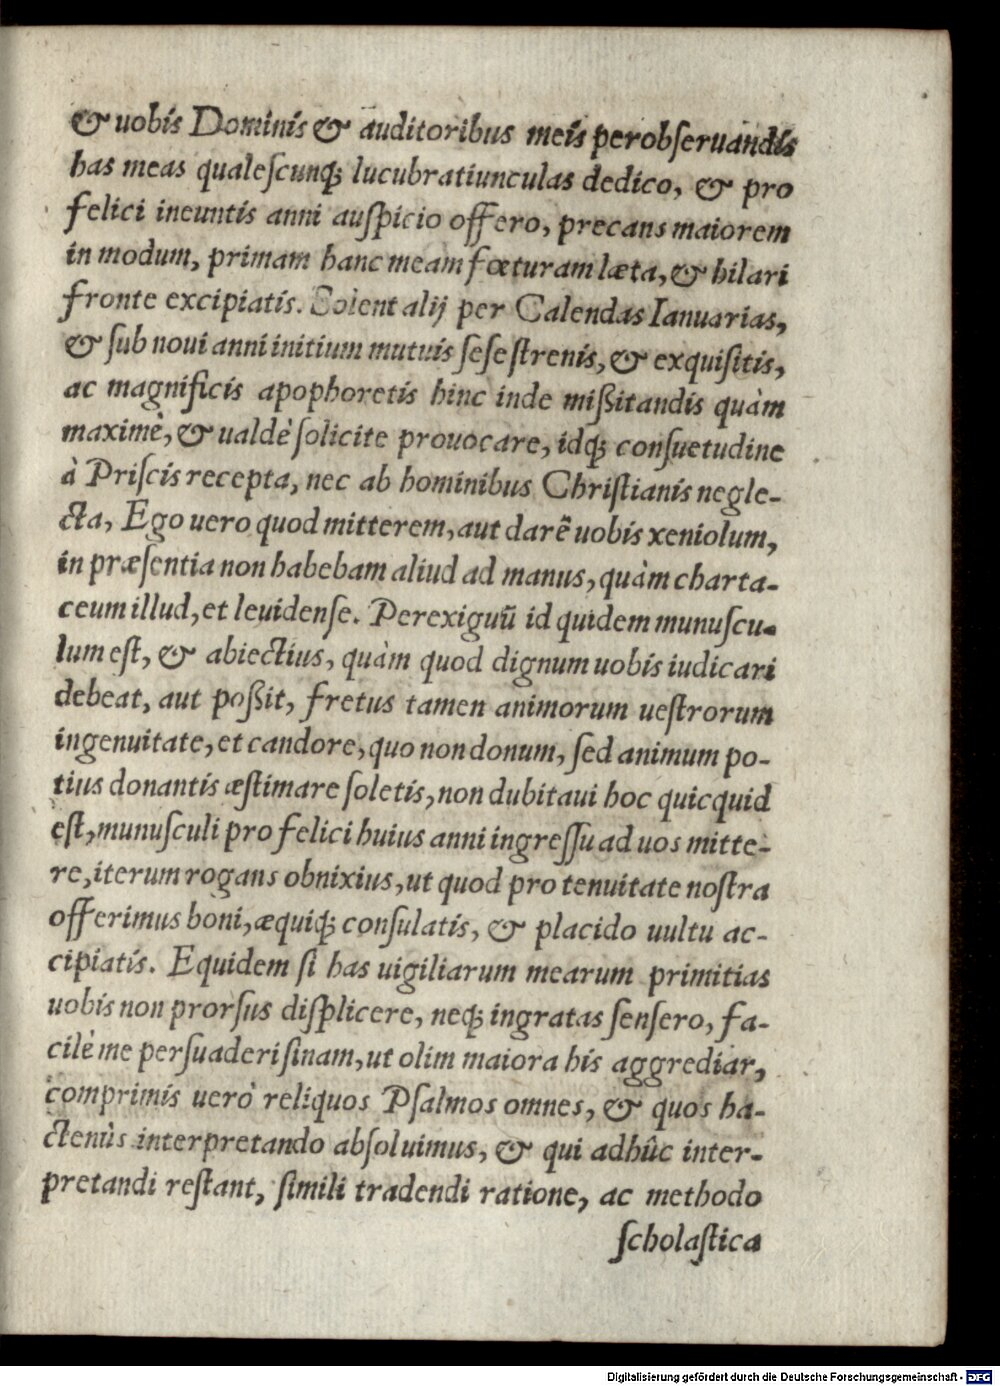 & uobis Dominis & auditoribus meis perobseruandis
has meas qualescunq; lucubratiunculas dedico, & pro
felici ineuntis anni auspicio offero, precans maiorem
in modum, primam hanc meam fœturam læta, & hilari
fronte excipiatis. Solent alij per Calendas Ianuarias,
& sub noui anni initium mutuis sese strenis, & exquisitis,
ac magnificis apophoretis hinc inde mißitandis quàm
maximè, & ualdè solicite prouocare, idq; consuetudine
à Priscis recepta, nec ab hominibus Christianis negle-
cta, Ego uero quod mitterem, aut darẽ uobis xeniolum,
in præsentia non habebam aliud ad manus, quàm charta-
ceum illud, et leuidense. Perexiguũ id quidem munuscu-
lum est, & abiectius, quàm quod dignum uobis iudicari
debeat, aut poßit, fretus tamen animorum uestrorum
ingenuitate, et candore, quo non donum, sed animum po-
tius donantis æstimare soletis, non dubitaui hoc quicquid
est, munusculi pro felici huius anni ingressu ad uos mitte-
re, iterum rogans obnixius, ut quod pro tenuitate nostra
offerimus boni, æquiq; consulatis, & placido uultu ac-
cipiatis. Equidem si has uigiliarum mearum primitias
uobis non prorsus displicere, neq; ingratas sensero, fa-
cilè me persuaderi sinam, ut olim maiora his aggrediar,
comprimis uerò reliquos Psalmos omnes, & quos ha-
ctenùs interpretando absoluimus, & qui adhûc inter-
pretandi restant, simili tradendi ratione, ac methodo
scholastica
Digitalisierung gefördert durch die Deutsche Forschungsgemeinschaft - DFG